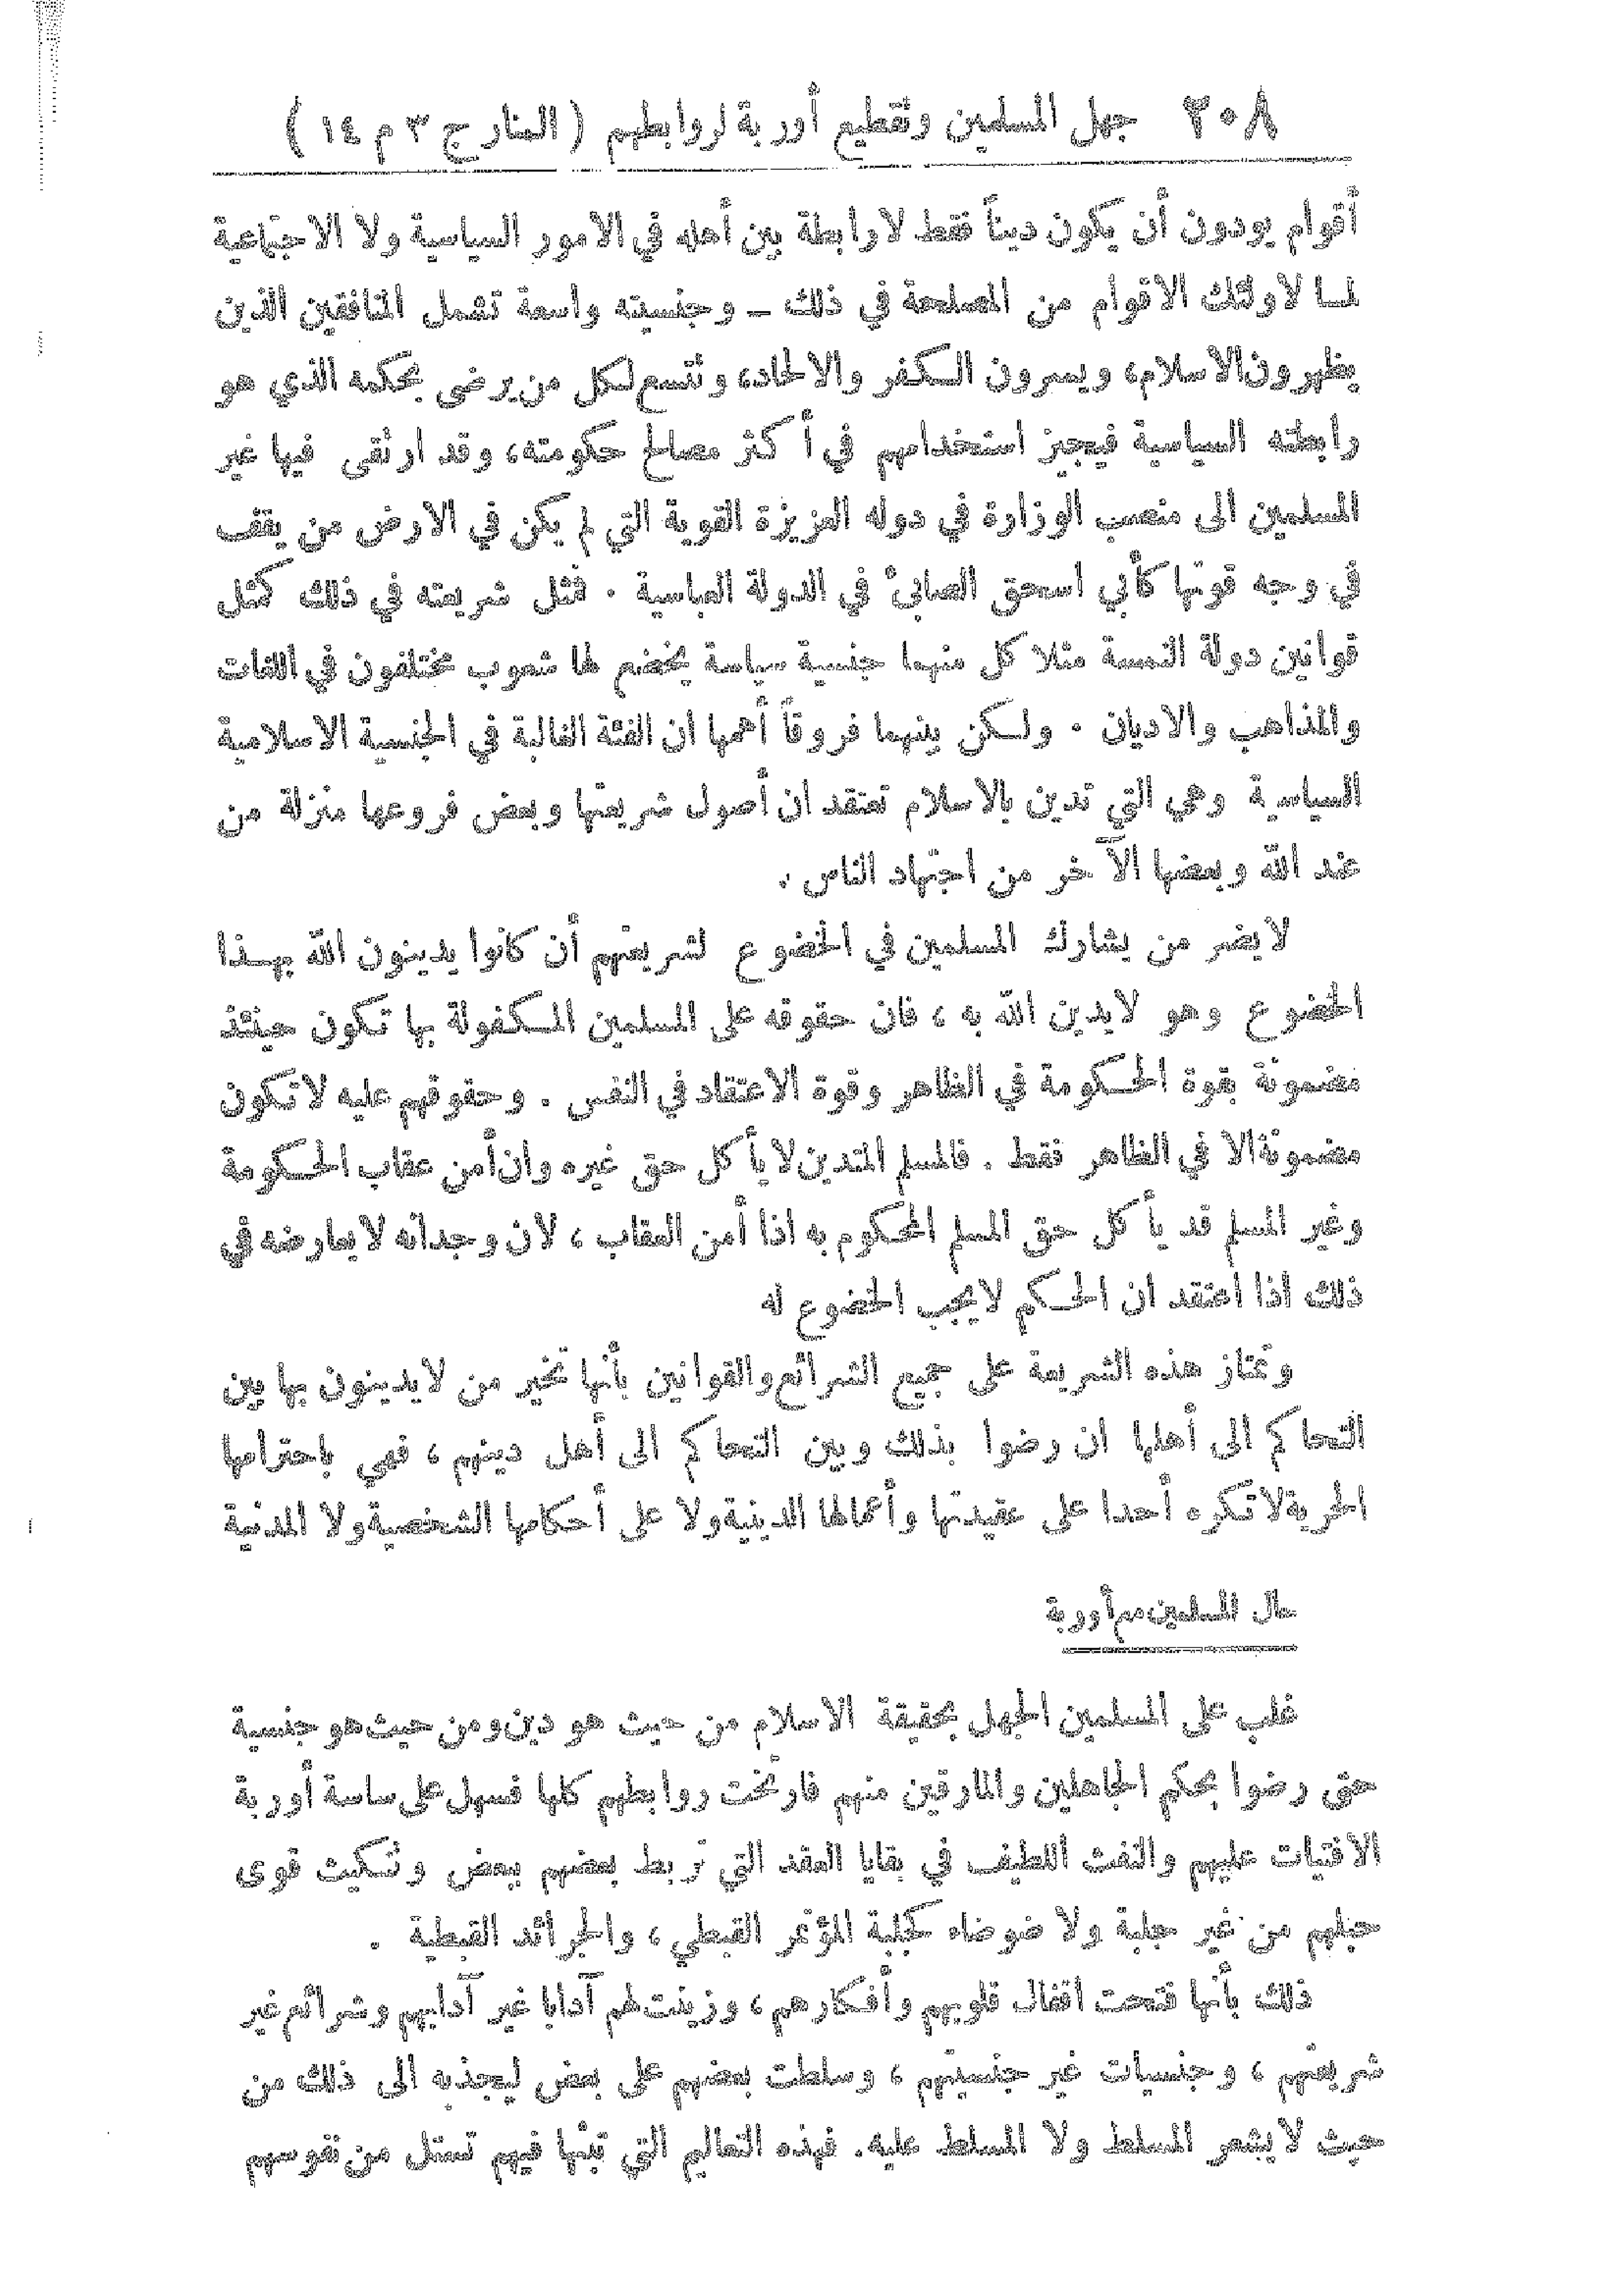 ٢٠٨ جهل المسلمين وتقطيع أوربة لروابطهم ( المنار ج ٣ م ١٤ )
أقوام يودون أن يكون ديناً فقط لا رابطة بين أهله في الامور السياسية ولا الاجتماعية
لما لاولئك الاقوام من المصلحة في ذلك ــ وجنسيته واسعة تشمل المنافقين الذين
يظهرون الاسلام، ويسرون الكفر والالحاد، وتتسع لكل من يرضى بحكمه الذي هو
رابطته السياسية فيجيز استخدامهم في أكثر مصالح حكومته، وقد ارتقى فيها غير
المسلمين الى منصب الوزارة في دوله العزيزة القوية التي لم يكن في الارض من يقف
في وجه قوتها كأبي اسحق الصابئ في الدولة العباسية . فمثل شريعته في ذلك كمثل
قوانين دولة النمسة مثلا كل منهما جنسية سياسة يخضع لها شعوب مختلفون في اللغات
والمذاهب والاديان . ولكن بينهما فروقاً أهمها ان الفئة الغالبة في الجنسية الاسلامية
السياسية وهي التي تدين بالاسلام تعتقد ان أصول شريعتها وبعض فروعها منزلة من
عند الله وبعضها الآخر من اجتهاد الناس .
لا يضر من يشارك المسلمين في الخضوع لشريعتهم أن كانوا يدينون الله بهذا
الخضوع وهو لا يدين الله به ، فان حقوقه على المسلمين المكفولة بها تكون حينئذ
مضمونة بقوة الحكومة في الظاهر وقوة الاعتقاد في النفس . وحقوقهم عليه لا تكون
مضمونة الا في الظاهر فقط . فالمسلم المتدين لا يأكل حق غيره وان أمن عقاب الحكومة
وغير المسلم قد يأكل حق المسلم المحكوم به اذا أمن العقاب ، لان وجدانه لا يعارضه في
ذلك اذا اعتقد ان الحكم لا يجب الخضوع له
وتمتاز هذه الشريعة على جميع الشرائع والقوانين بأنها تخير من لا يدينون بها بين
التحاكم الى أهلها ان رضوا بذلك وبين التحاكم الى أهل دينهم ، فهي باحترامها
الحرية لا تكره أحدا على عقيدتها وأعمالها الدينية ولا على أحكامها الشخصية ولا المدنية
حال المسلمين مع أوربة
غلب على المسلمين الجهل بحقيقة الاسلام من حيث هو دين ومن حيث هو جنسية
حتى رضوا بحكم الجاهلين والمارقين منهم فارتخت روابطهم كلها فسهل على ساسة أوربة
الافتيات عليهم والنفث اللطيف في بقايا العقد التي تربط بعضهم ببعض وتنكيث قوى
حبلهم من غير جلبة ولا ضوضاء كجلبة المؤتمر القبطي ، والجرائد القبطية .
ذلك بأنها فتحت اقفال قلوبهم وأفكارهم ، وزينت لهم آدابا غير آدابهم وشرائع غير
شريعتهم ، وجنسيات غير جنسيتهم ، وسلطت بعضهم على بعض ليجذبه الى ذلك من
حيث لا يشعر المسلط ولا المسلط عليه. فهذه التعاليم التي تبثها فيهم تستل من نفوسهم